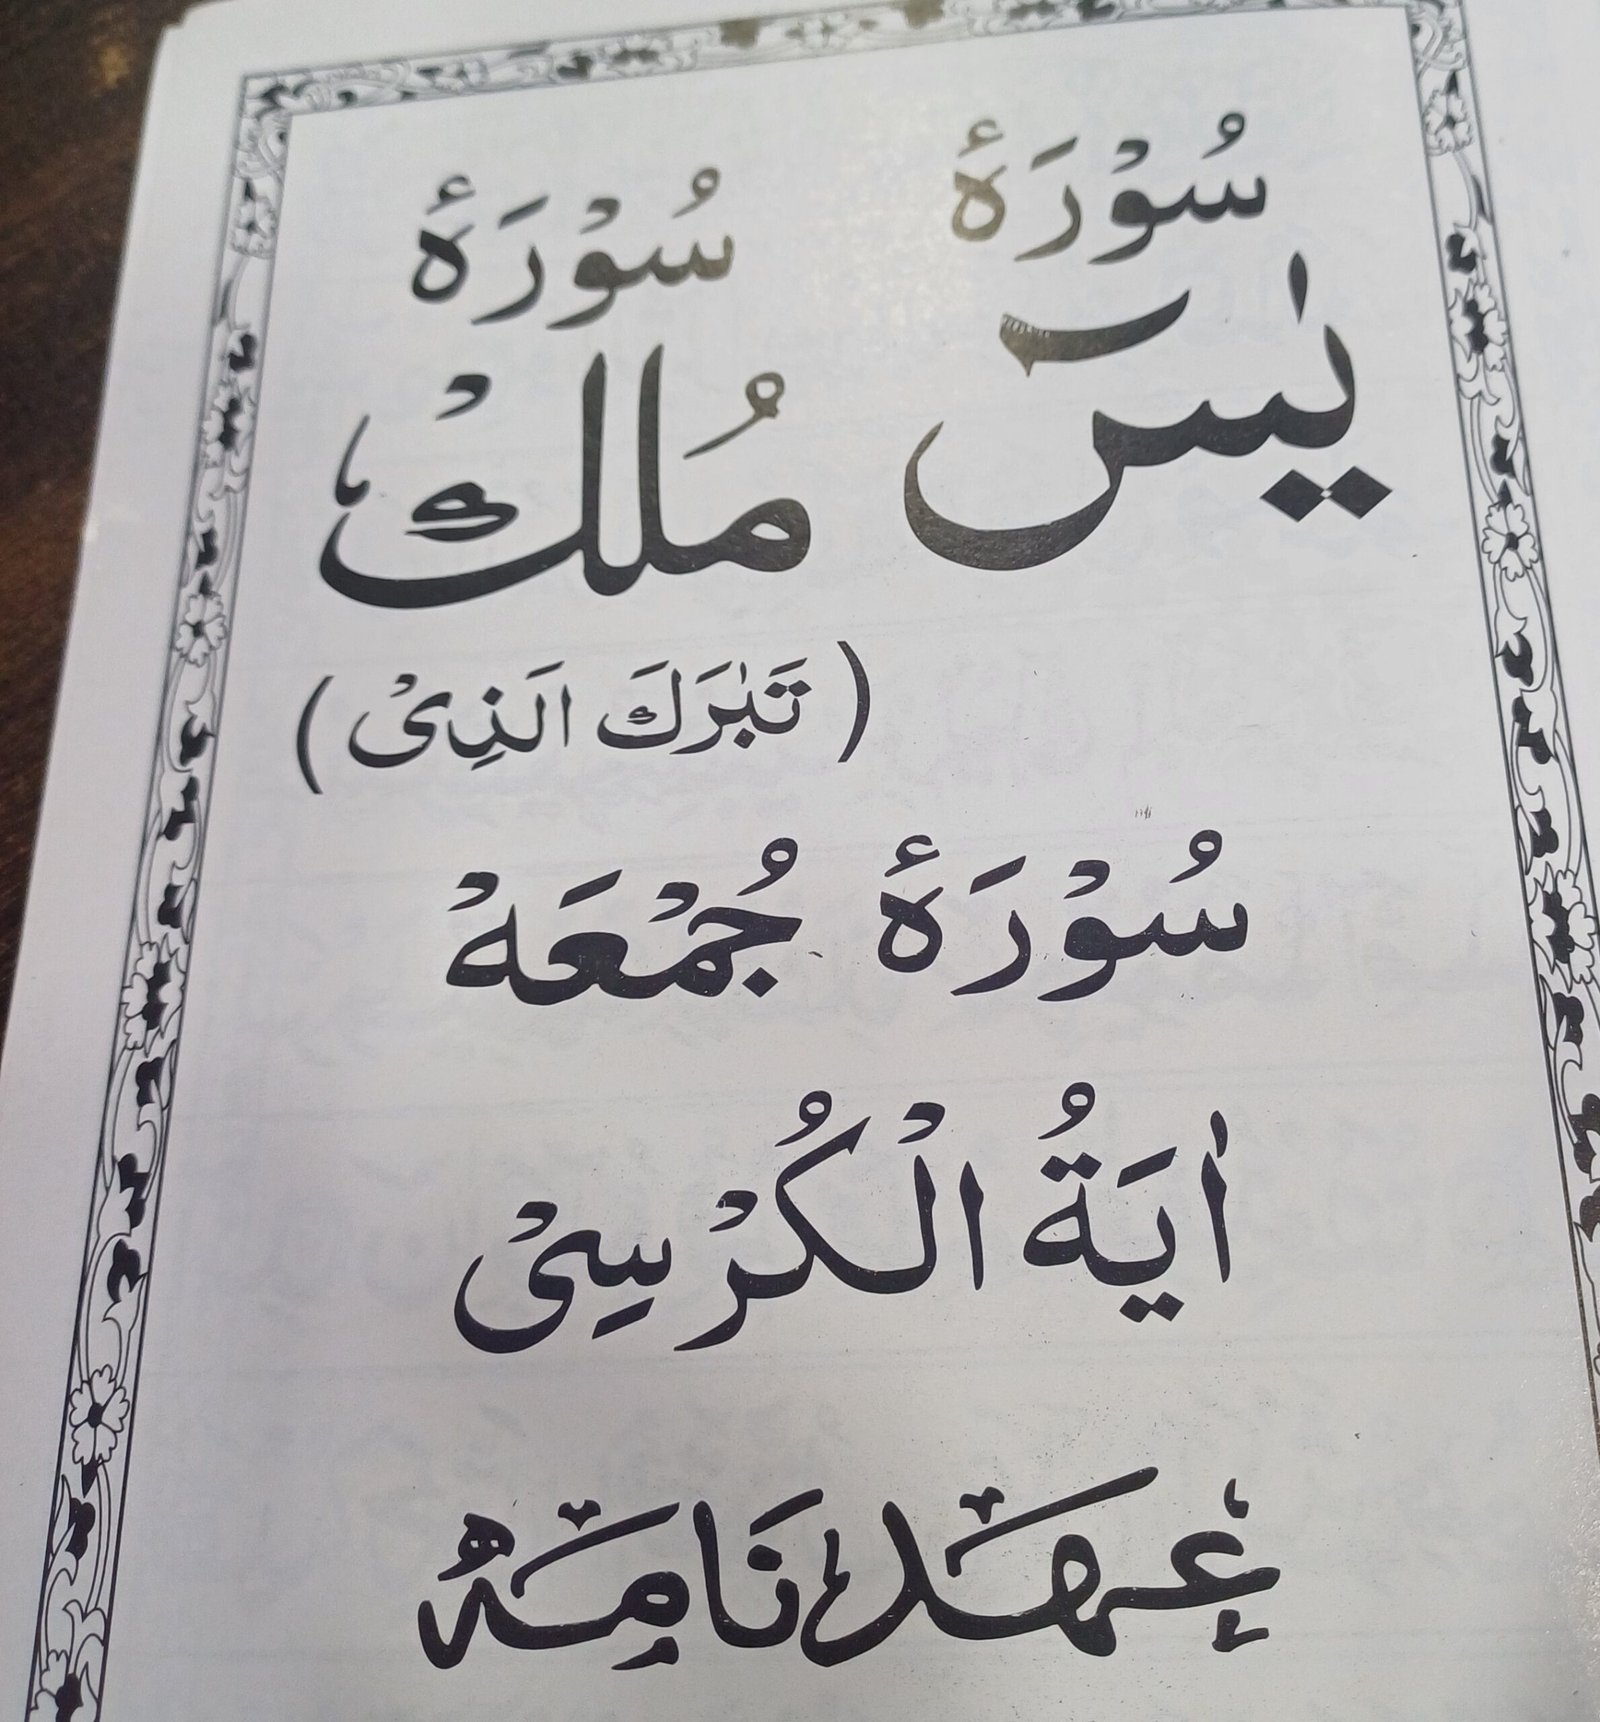 سُوْرَۂ یٰسٓ
سُوْرَۂ مُلکْ
( تَبٰرَكَ الَذِیْ )
سُوْرَۂ جُمْعَہْ
اٰیَةُ الْکُرْسِیْ
عہَد نَامَہ